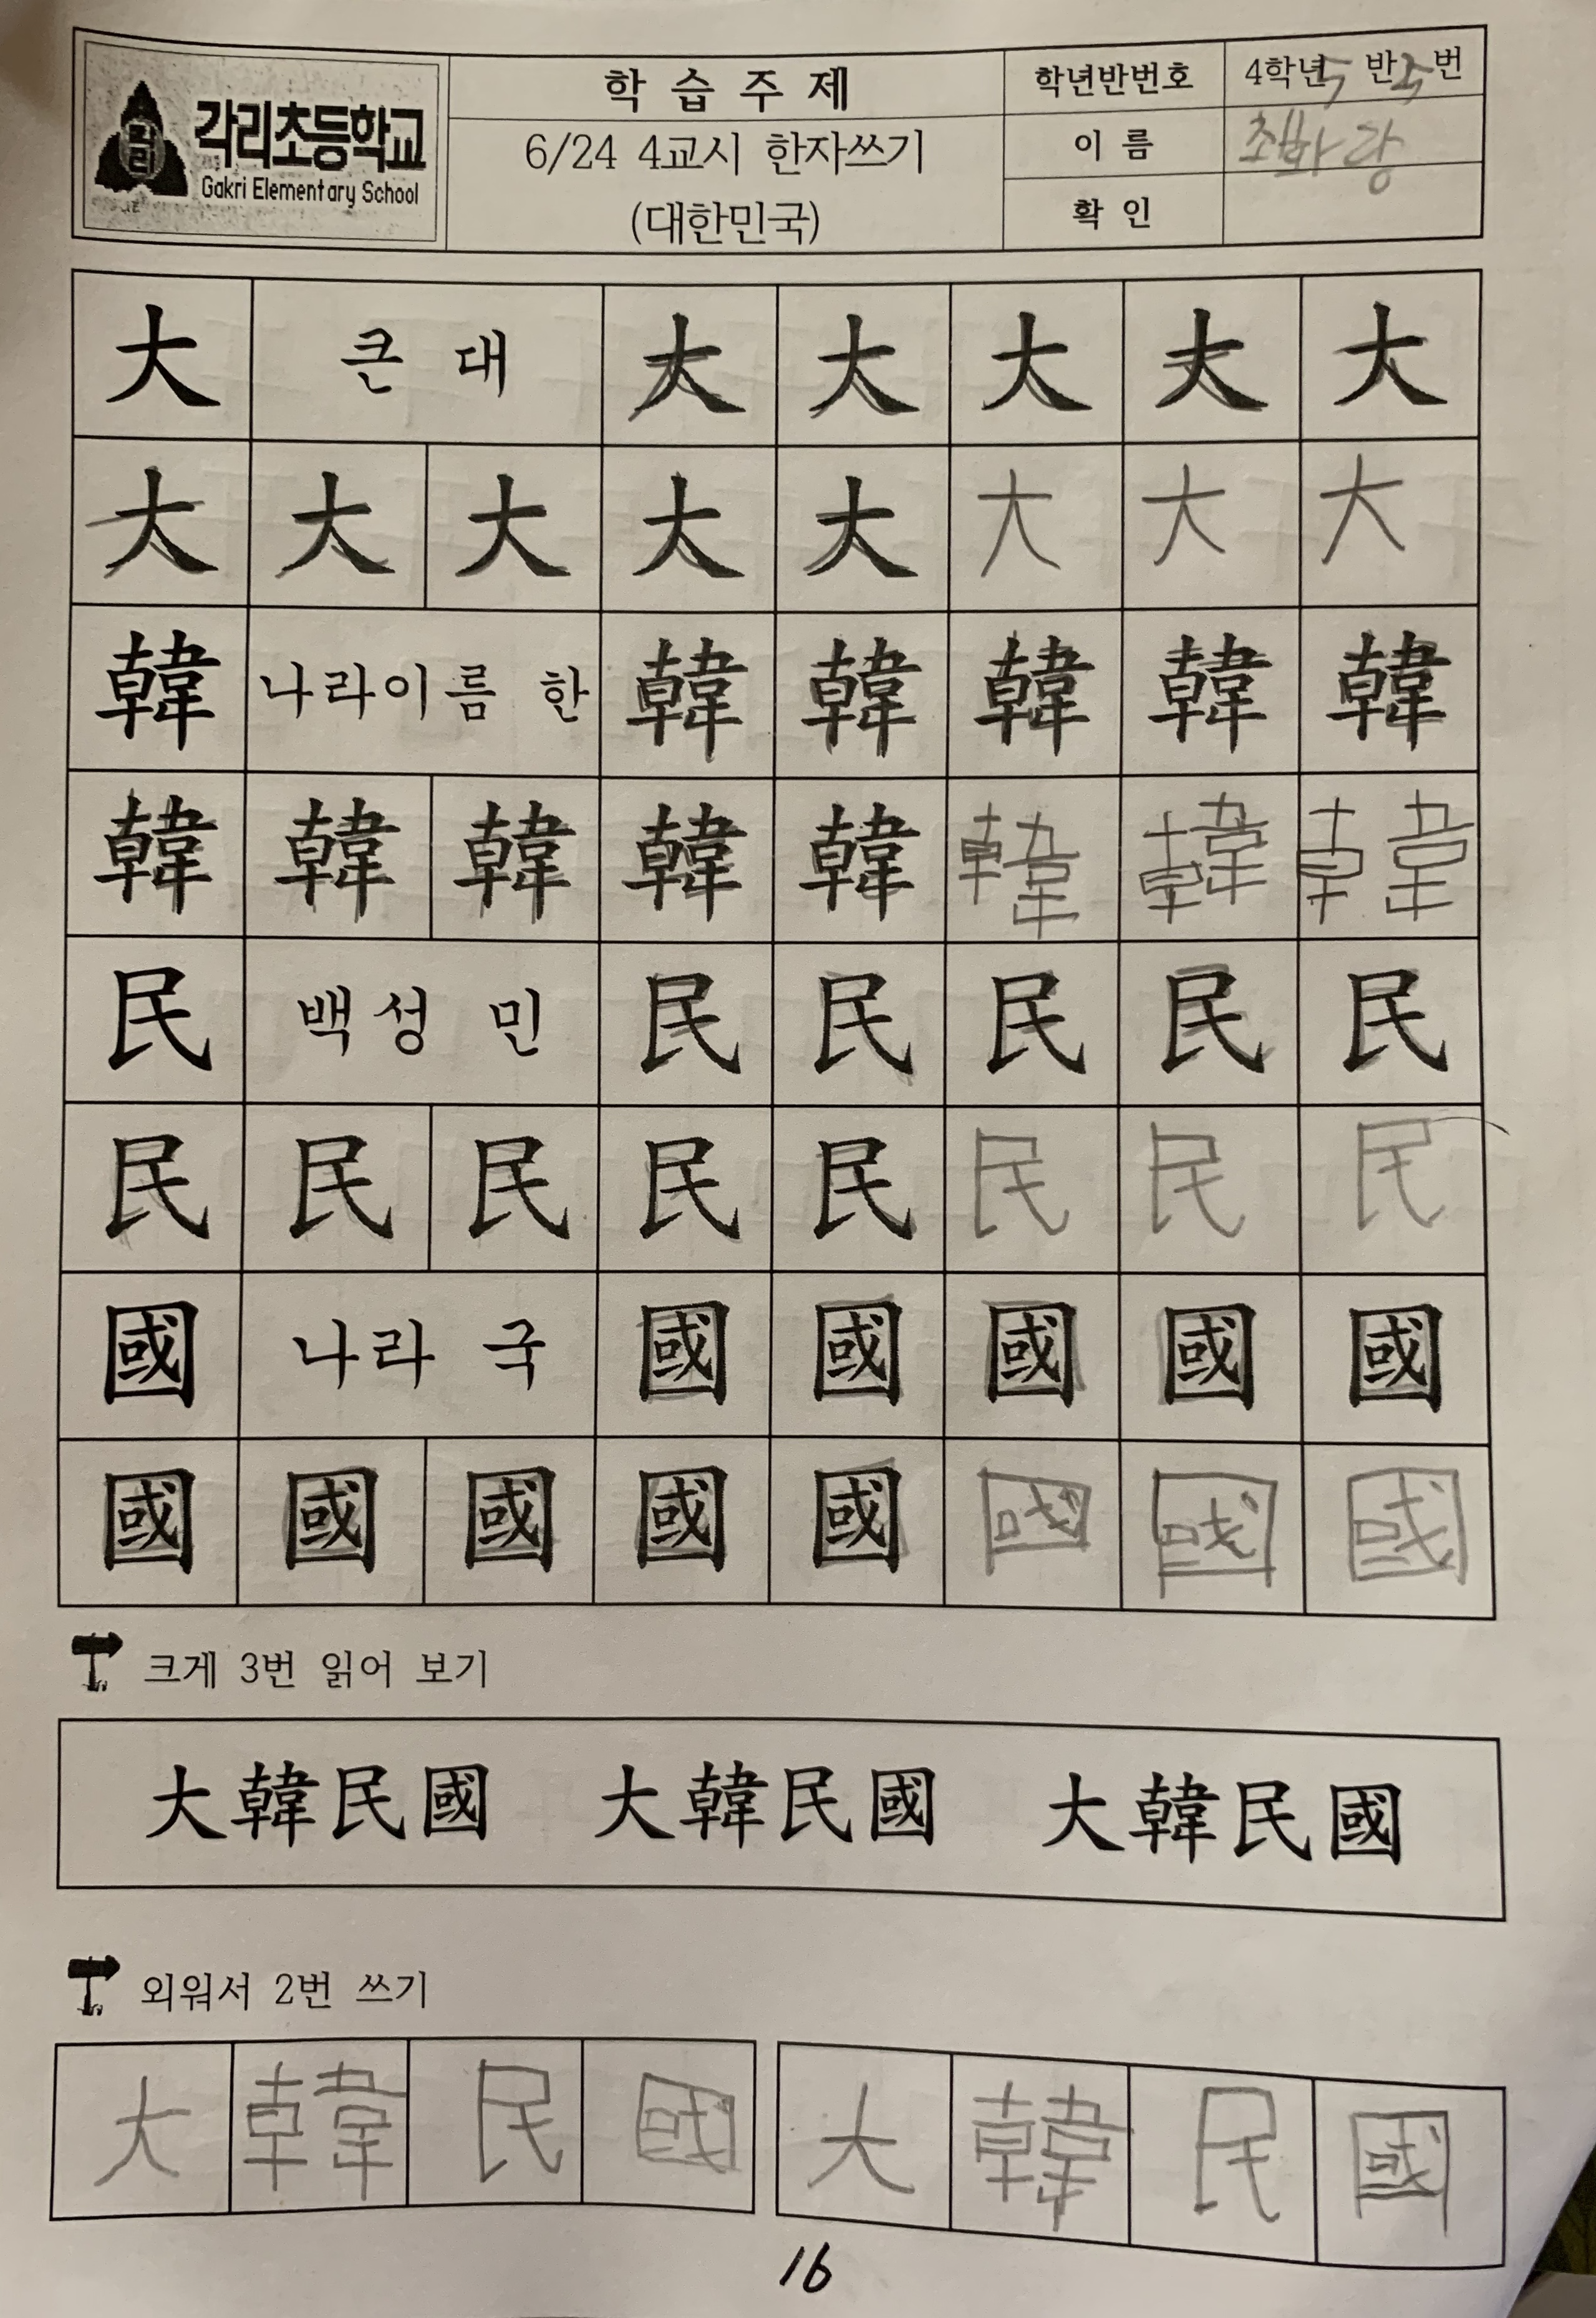 각리
각리초등학교
Gakri Elementary School
학 습 주 제
6/24 4교시 한자쓰기
(대한민국)
학년반번호
4학년 5 반 5 번
이 름
최화랑
확 인
大 큰 대 大 大 大 大 大
大 大 大 大 大 大 大 大
韓 나라이름 한 韓 韓 韓 韓 韓
韓 韓 韓 韓 韓 韓 韓 韓
民 백성 민 民 民 民 民 民
民 民 民 民 民 民 民 民
國 나라 국 國 國 國 國 國
國 國 國 國 國 國 國 國
크게 3번 읽어 보기
大韓民國 大韓民國 大韓民國
외워서 2번 쓰기
大 韓 民 國 大 韓 民 國
16